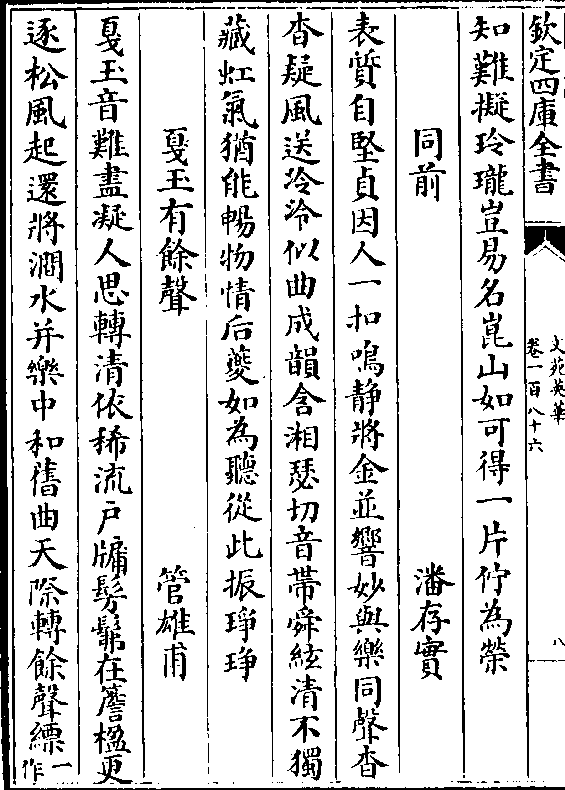 欽定四庫全書
文苑英華
卷一百八十六
八
知難擬玲瓏豈易名崑山如可得一片佇為榮
同前
潘存實
表質自堅貞因人一扣鳴静將金並響妙與樂同聲杳
杳疑風送泠泠似曲成韻含湘瑟切音帶舜絃清不獨
藏虹氣猶能暢物情后夔如為聽從此振琤琤
戛玉有餘聲
管雄甫
戛玉音難盡凝人思轉清依稀流户牖髣髴在簷楹更
逐松風起還將澗水并樂中和舊曲天際轉餘聲縹一作